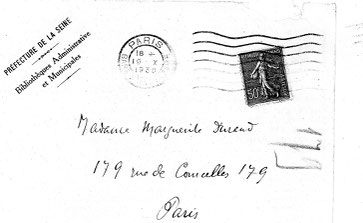 PRÉFECTURE DE LA SEINE
Bibliothèques Administrative
et Municipales
PARIS
18
19 X
50
Madame Marguerite Durand
179 rue de Courcelles 179
Paris